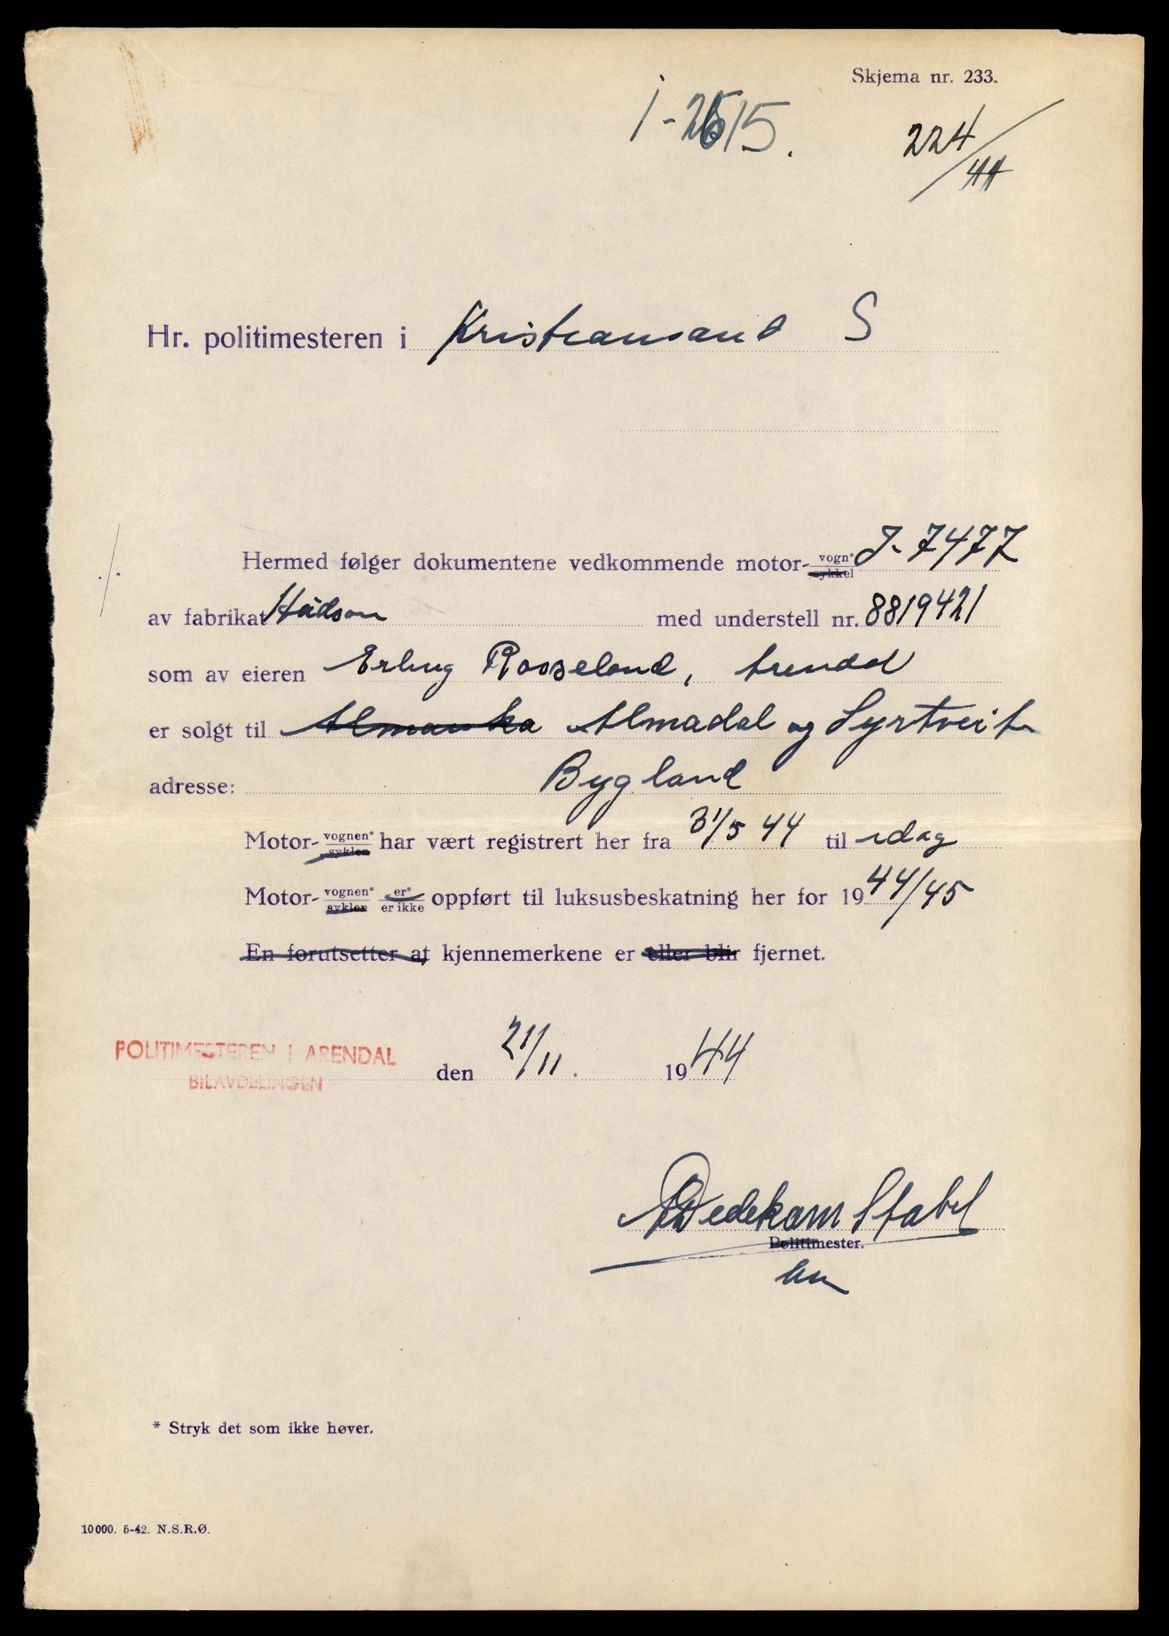 Skjema nr. 233.
I-2615.
224/44
Hr. politimesteren i Kristiansand S
Hermed følger dokumentene vedkommende motor- vogn* sykkel J-7477
av fabrikat Hudson med understell nr. 8819421
som av eieren Erling Rosseland, Arendal
er solgt til Almadal og Syrtveit
adresse: Bygland
Motor- vognen* syklen har vært registrert her fra 31/5 44 til idag
Motor- vognen* syklen er* er ikke oppført til luksusbeskatning her for 1944/45
En forutsetter at kjennemerkene er eller blir fjernet.
POLITIMESTEREN I ARENDAL
BILAVDELINGEN
den 21/11. 1944
Dedekam Stabel
Politimester.
* Stryk det som ikke høver.
10000. 5-42. N.S.R.Ø.